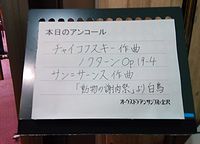 本日のアンコール
チャイコフスキー作曲
ノクターン Op.19-4
サン=サーンス作曲
「動物の謝肉祭」より白鳥
オーケストラ・アンサンブル・金沢